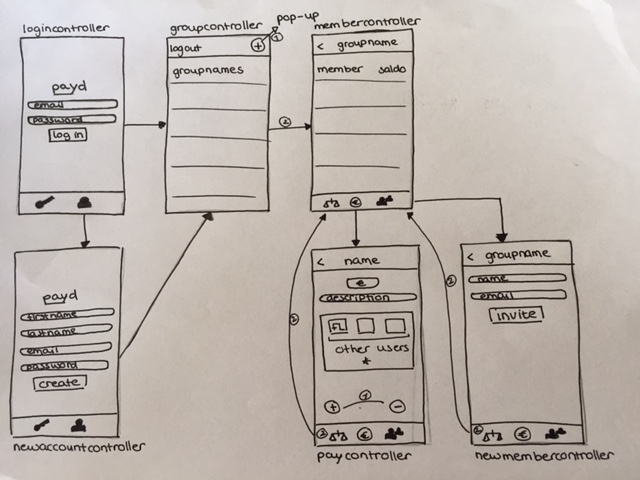 logincontroller
payd
email
password
log in
groupcontroller
pop-up
1
logout +
groupnames
2
membercontroller
< groupname
member saldo
€
payd
firstname
lastname
email
password
create
newaccountcontroller
< name
€
description
FL
other users
*
1
+ -
2
€
paycontroller
2
< groupname
name
email
invite
€
newmembercontroller